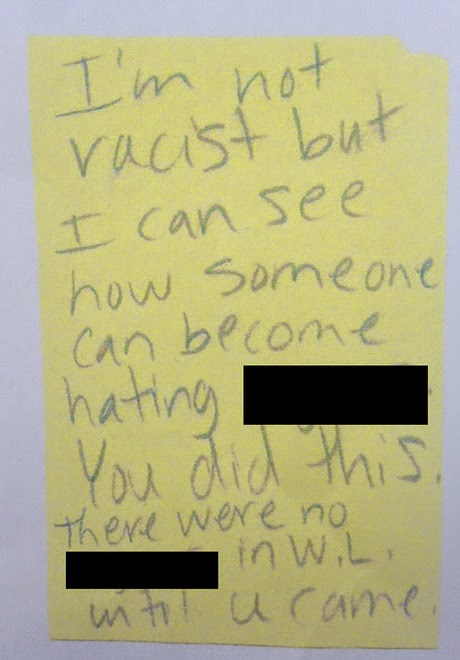 I'm not
racist but
I can see
how someone
can become
hating
You did this.
There were no
in W.L.
until u came.